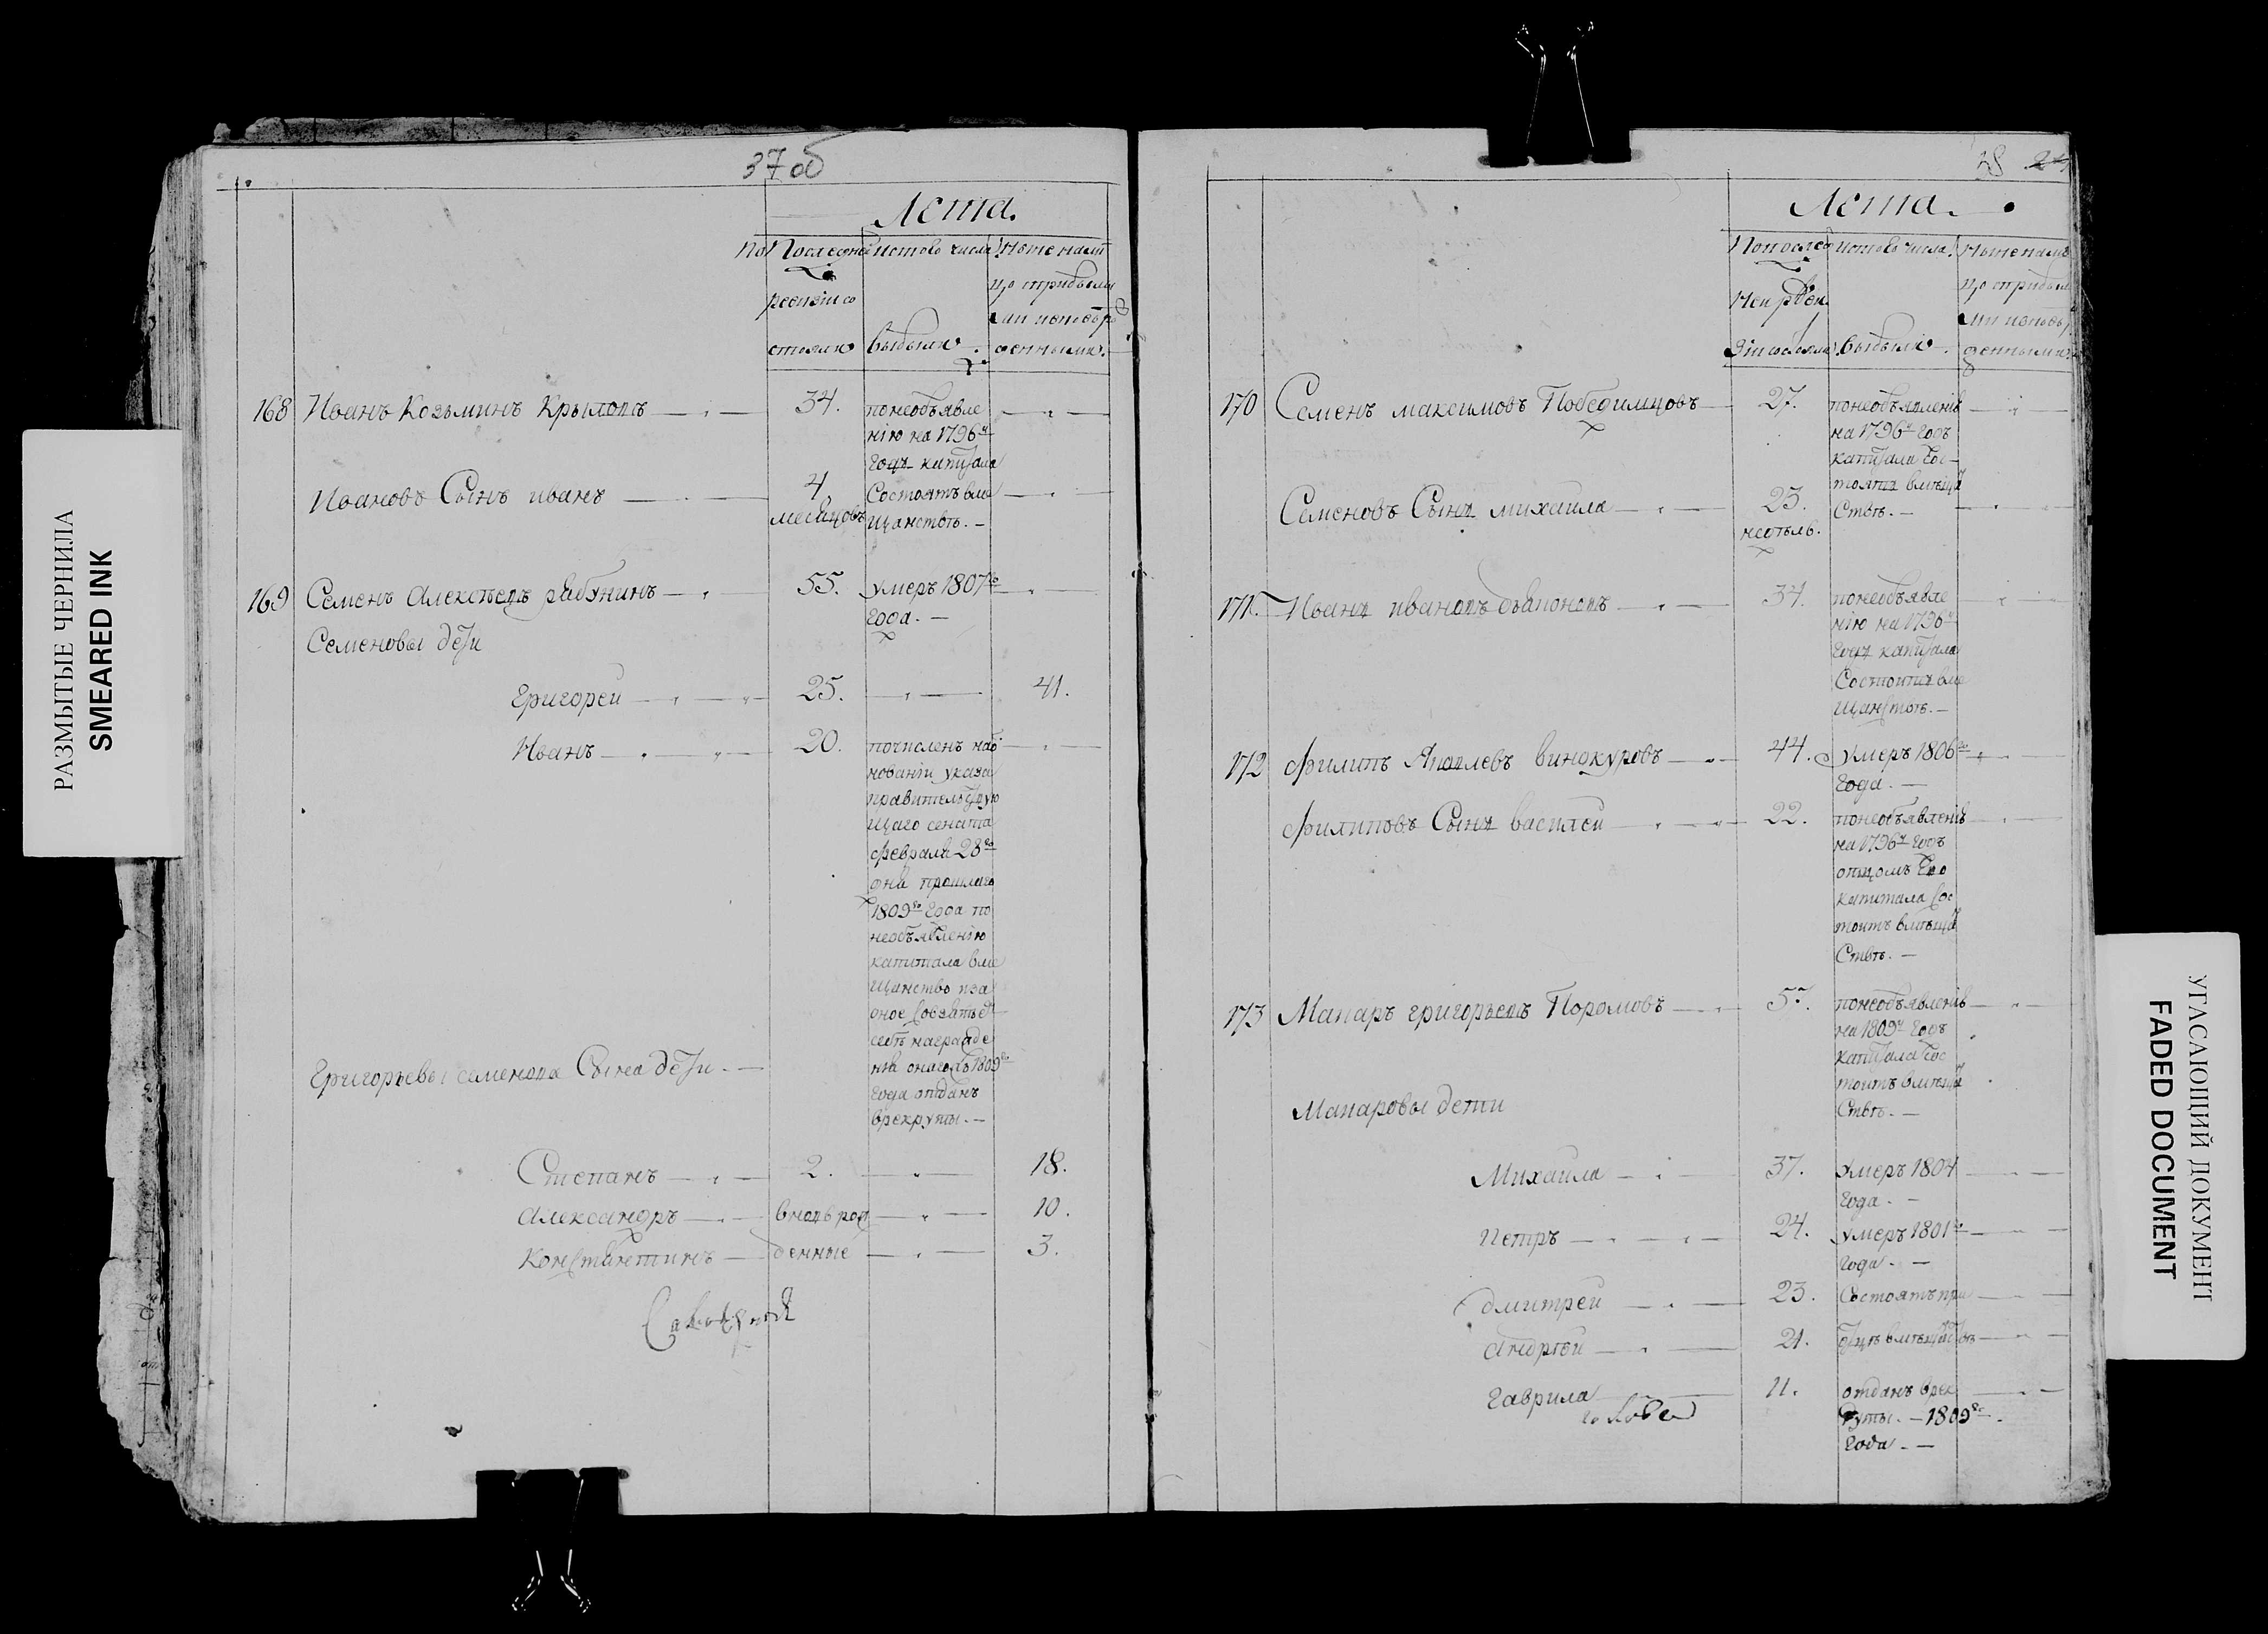 РАЗМЫТЫЕ ЧЕРНИЛА
SMEARED INK
37 об
Лета.
По Последней
ревизіи со
стояло
истово числа
выбыли.
Ныне налицо
съ прибылы
ми и новоро
денными.
168 Иванъ Козьминъ Крыловъ 34.
понеобъявле
нію на 1796й
Годъ капитала
Состоятъ вме
щанстве. —
Ивановъ Сынъ иванъ 4
месяцовъ
169 Семенъ Алексеевъ рябянинъ 55.
умеръ 1807го
Года. —
Семеновы дети
Григореи 25. 41.
Иванъ 20.
почисленъ наос
нованіи указа
правительствую
щаго сената
февраля 28го
дня прошлаго
1809го Года по
необъявленію
капитала вме
щанство иза
оное
1809го
Года отданъ
врекруты. —
Григорьевы семенова Сына дети. —
Степанъ 2. 18.
Александръ вновьрож 10.
Константинъ денные 3.
38
Лета.
Попослед
ней реви
зіи состояло
истово числа
выбыли.
Ныне налицо
съ прибылы
ми и новоро
денными.
170 Семенъ максимовъ Победимцовъ 27.
понеобъявленію
на 1796й Годъ
капитала Сос-
тоятъ вмеща
Стве. —
Семеновъ Сынъ михаила 23.
недель.
171. Иванъ ивановъ дьяконовъ 34.
понеобъявле
нію на 1796й
Годъ капитала
Состоитъ вме
щанстве. —
172 Филипъ Яковлевъ винокуровъ 44.
умеръ 1806го
Года. —
Филиповъ Сынъ василеи 22.
понеобъявленію
на 1796й Годъ
отцомъ Его
капитала Сос
тоитъ вмеща
Стве. —
173 Макаръ григорьевъ Поромовъ 57.
понеобъявленію
на 1809й Годъ
капитала Сос
тоитъ вмеща
Стве. —
Макаровы дети
Михаила 37.
Умеръ 1804
Года. —
Петръ 24.
умеръ 1801го
Года. —
Дмитреи 23. Состоятъ при
Андреи 21. отце вмещанстве
Гаврила 11.
отданъ врек
руты. — 1809го
Года. —
УГАСАЮЩИЙ ДОКУМЕНТ
FADED DOCUMENT